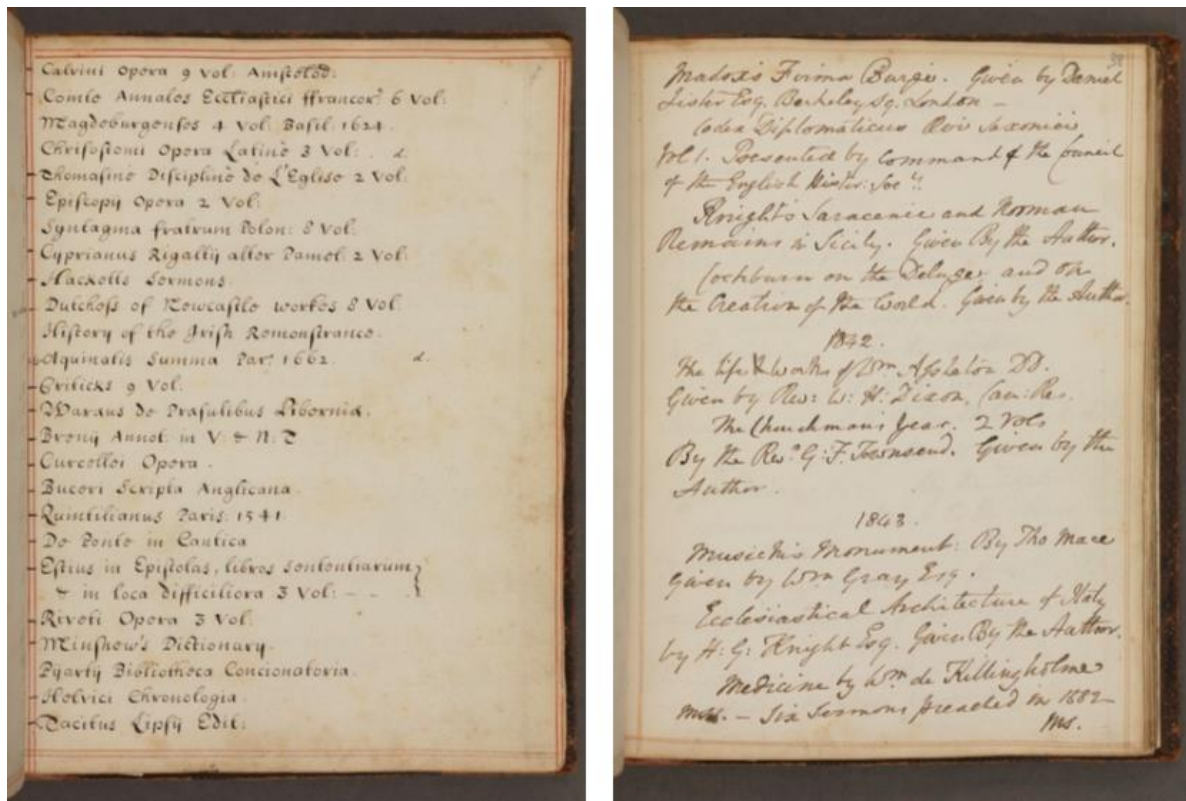 Calvini Opera 9 Vol: Amstelod:
Comte Annales Ecclesiastici ffrancor: 6 Vol:
Magdeburgenses 4 Vol: Basil: 1624.
Chrisostomi Opera Latine 3 Vol: . d.
Thomasine Discipline de L'Eglise 2 Vol:
Episcopij Opera 2 Vol:
Syntagma fratrum Polon: 8 Vol:
Cyprianus Rigaltij alter Pamel: 2 Vol:
Hacketts Sermons.
Dutchess of Newcastle workes 8 Vol:
History of the Irish Remonstrance.
Aquinatis Summa Par: 1662. d.
Criticks 9 Vol.
Waraus de Prasulibus Libernia.
Brenij Annot: in V: & N: T
Curcellei Opera.
Buceri Scripta Anglicana.
Quintilianus Paris: 1541.
De Ponte in Cantica
Estius in Epistolas, libros sententiarum
& in loca difficiliora 3 Vol: - - .
Riveti Opera 3 Vol:
Minshew's Dictionary.
Bibliotheca Concionatoria.
Helvici Chronologia.
Tacitus Lipsij Edit:
38
Madox's Firma Burgi. Given by Daniel
Lister Esq. Berkeley Sq. London –
Codex Diplomaticus Ævi Saxonici
Vol 1. Presented by Command of the Council
of the English Histor: Soc:y
Knight's Saracenic and Norman
Remains in Sicily. Given By the Author.
Cockburn on the Deluge and on
the Creation of the World. Given by the Author.
1842.
The life & works of Wm Assheton DD.
Given by Rev: W: H: Dixon, Can: Res.
The Churchman's Year. 2 Vols
By the Revd G: F. Townsend. Given by the
Author.
1843.
Musick's Monument: By Tho Mace
Given by Wm Gray Esq.
Ecclesiastical Architecture of Italy
by H: G: Knight Esq. Given By the Author.
Medicine by Wm de Killingholme
– Six Sermons preached in 1682–
Ms.